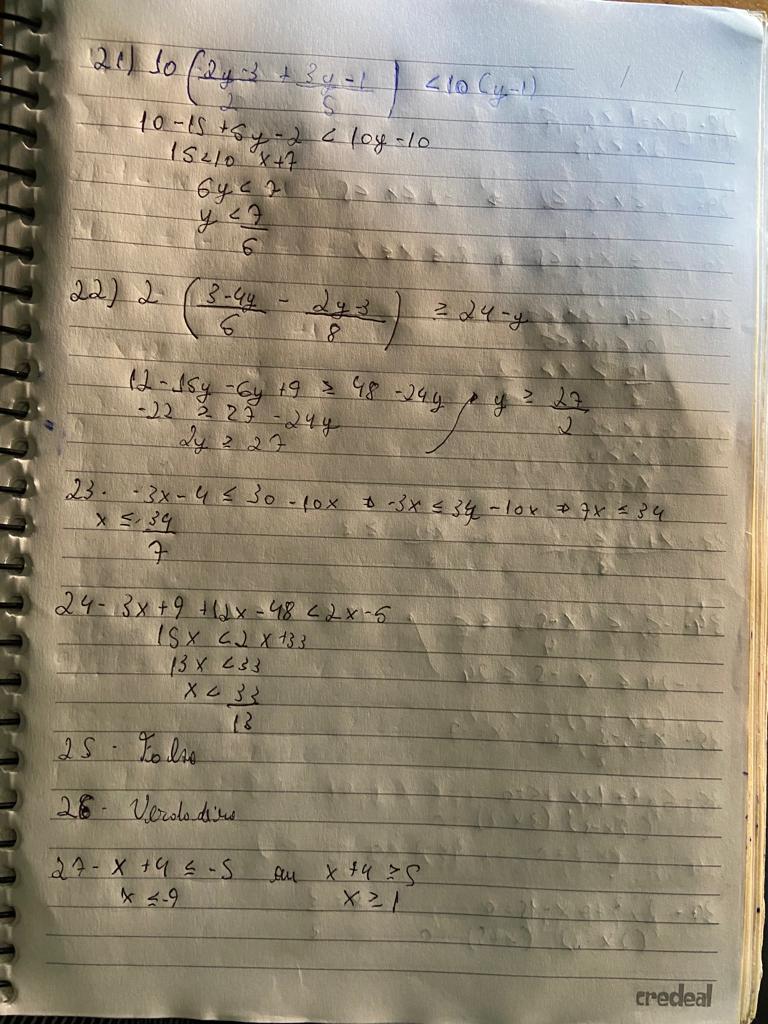 21) 10 (2y-3/2 + 3y-1/5) < 10 (y-1)
10 - 15 + 6y - 2 < 10y - 10
15 < 10 x + 7
6y < 7
y < 7/6
22) 2 (3-4y/6 - 2y-3/8) ≥ 24-y
12 - 16y - 6y + 9 ≥ 48 - 24y y ≥ 27/2
-22 ≥ 27 - 24y
2y ≥ 27
23. -3x - 4 ≤ 30 - 10x ⇒ -3x ≤ 34 - 10x ⇒ 7x ≤ 34
x ≤ 34/7
24- 3x + 9 + 12x - 48 < 2x - 6
15x < 2x + 33
13x < 33
x < 33/13
25 - Falso
26 - Verdadeiro
27 - x + 4 ≤ -5 ou x + 4 ≥ 5
x ≤ -9 x ≥ 1
credeal